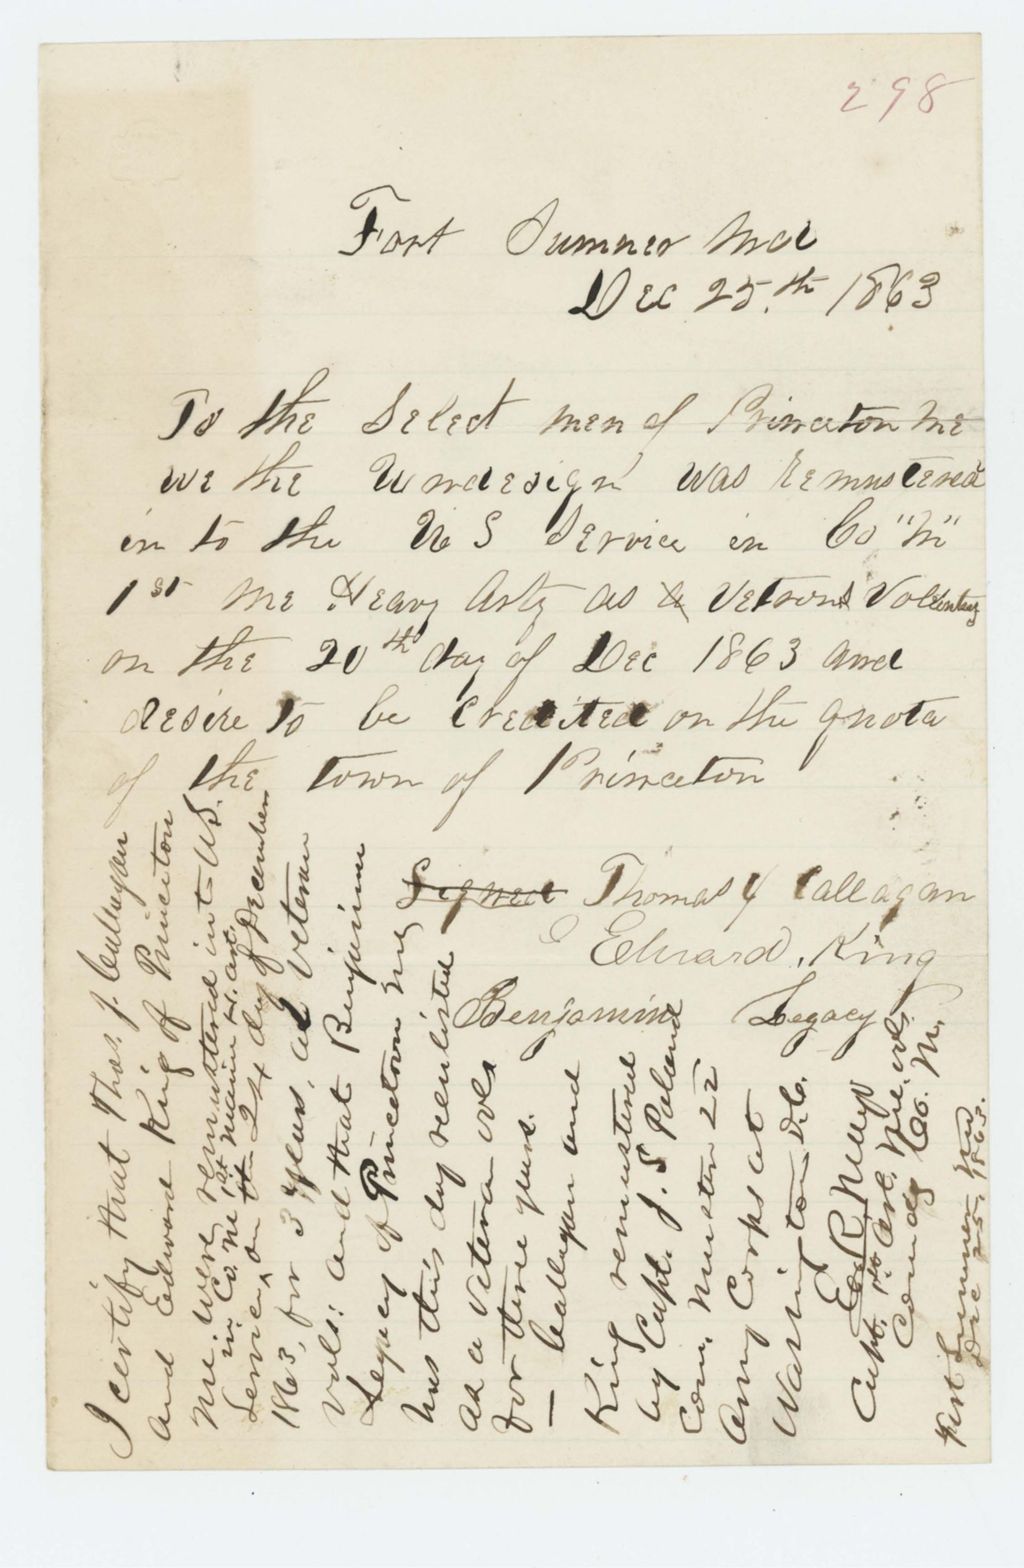 298
Fort Sumner Md
Dec 25.th 1863
To the Select men of Princeton Me
we the Undesign' was Remustered
in to the U S Service in Co "M"
1st Me Heavy Arty as a Vetrons Voluntary
on the 20th day of Dec 1863 and
desire to be Credited on the quota
of the town of Princeton
Signed Thomas J Callagan
Edward King
Benjamin Legacy
I certify that Thos. J. Callagan
and Edward King of Princeton
Me were remustered into U.S.
in Co. M 1st Maine H. Art.
Service, on the 24 day of December
1863, for 3 years, as Veteran
Vols: and that Benjamin
Legacy of Princeton Me
has this day reenlisted
as a veteran vols
for three years.
— Callagan and
King remustered
by Capt. J. S Poland
Com. Muster 22
Army Corps at
Washington D.C.
Capt. 1st Art. Me. vols.
Comdg Co. M.
Fort Sumner Md
Dec 25. 1863.